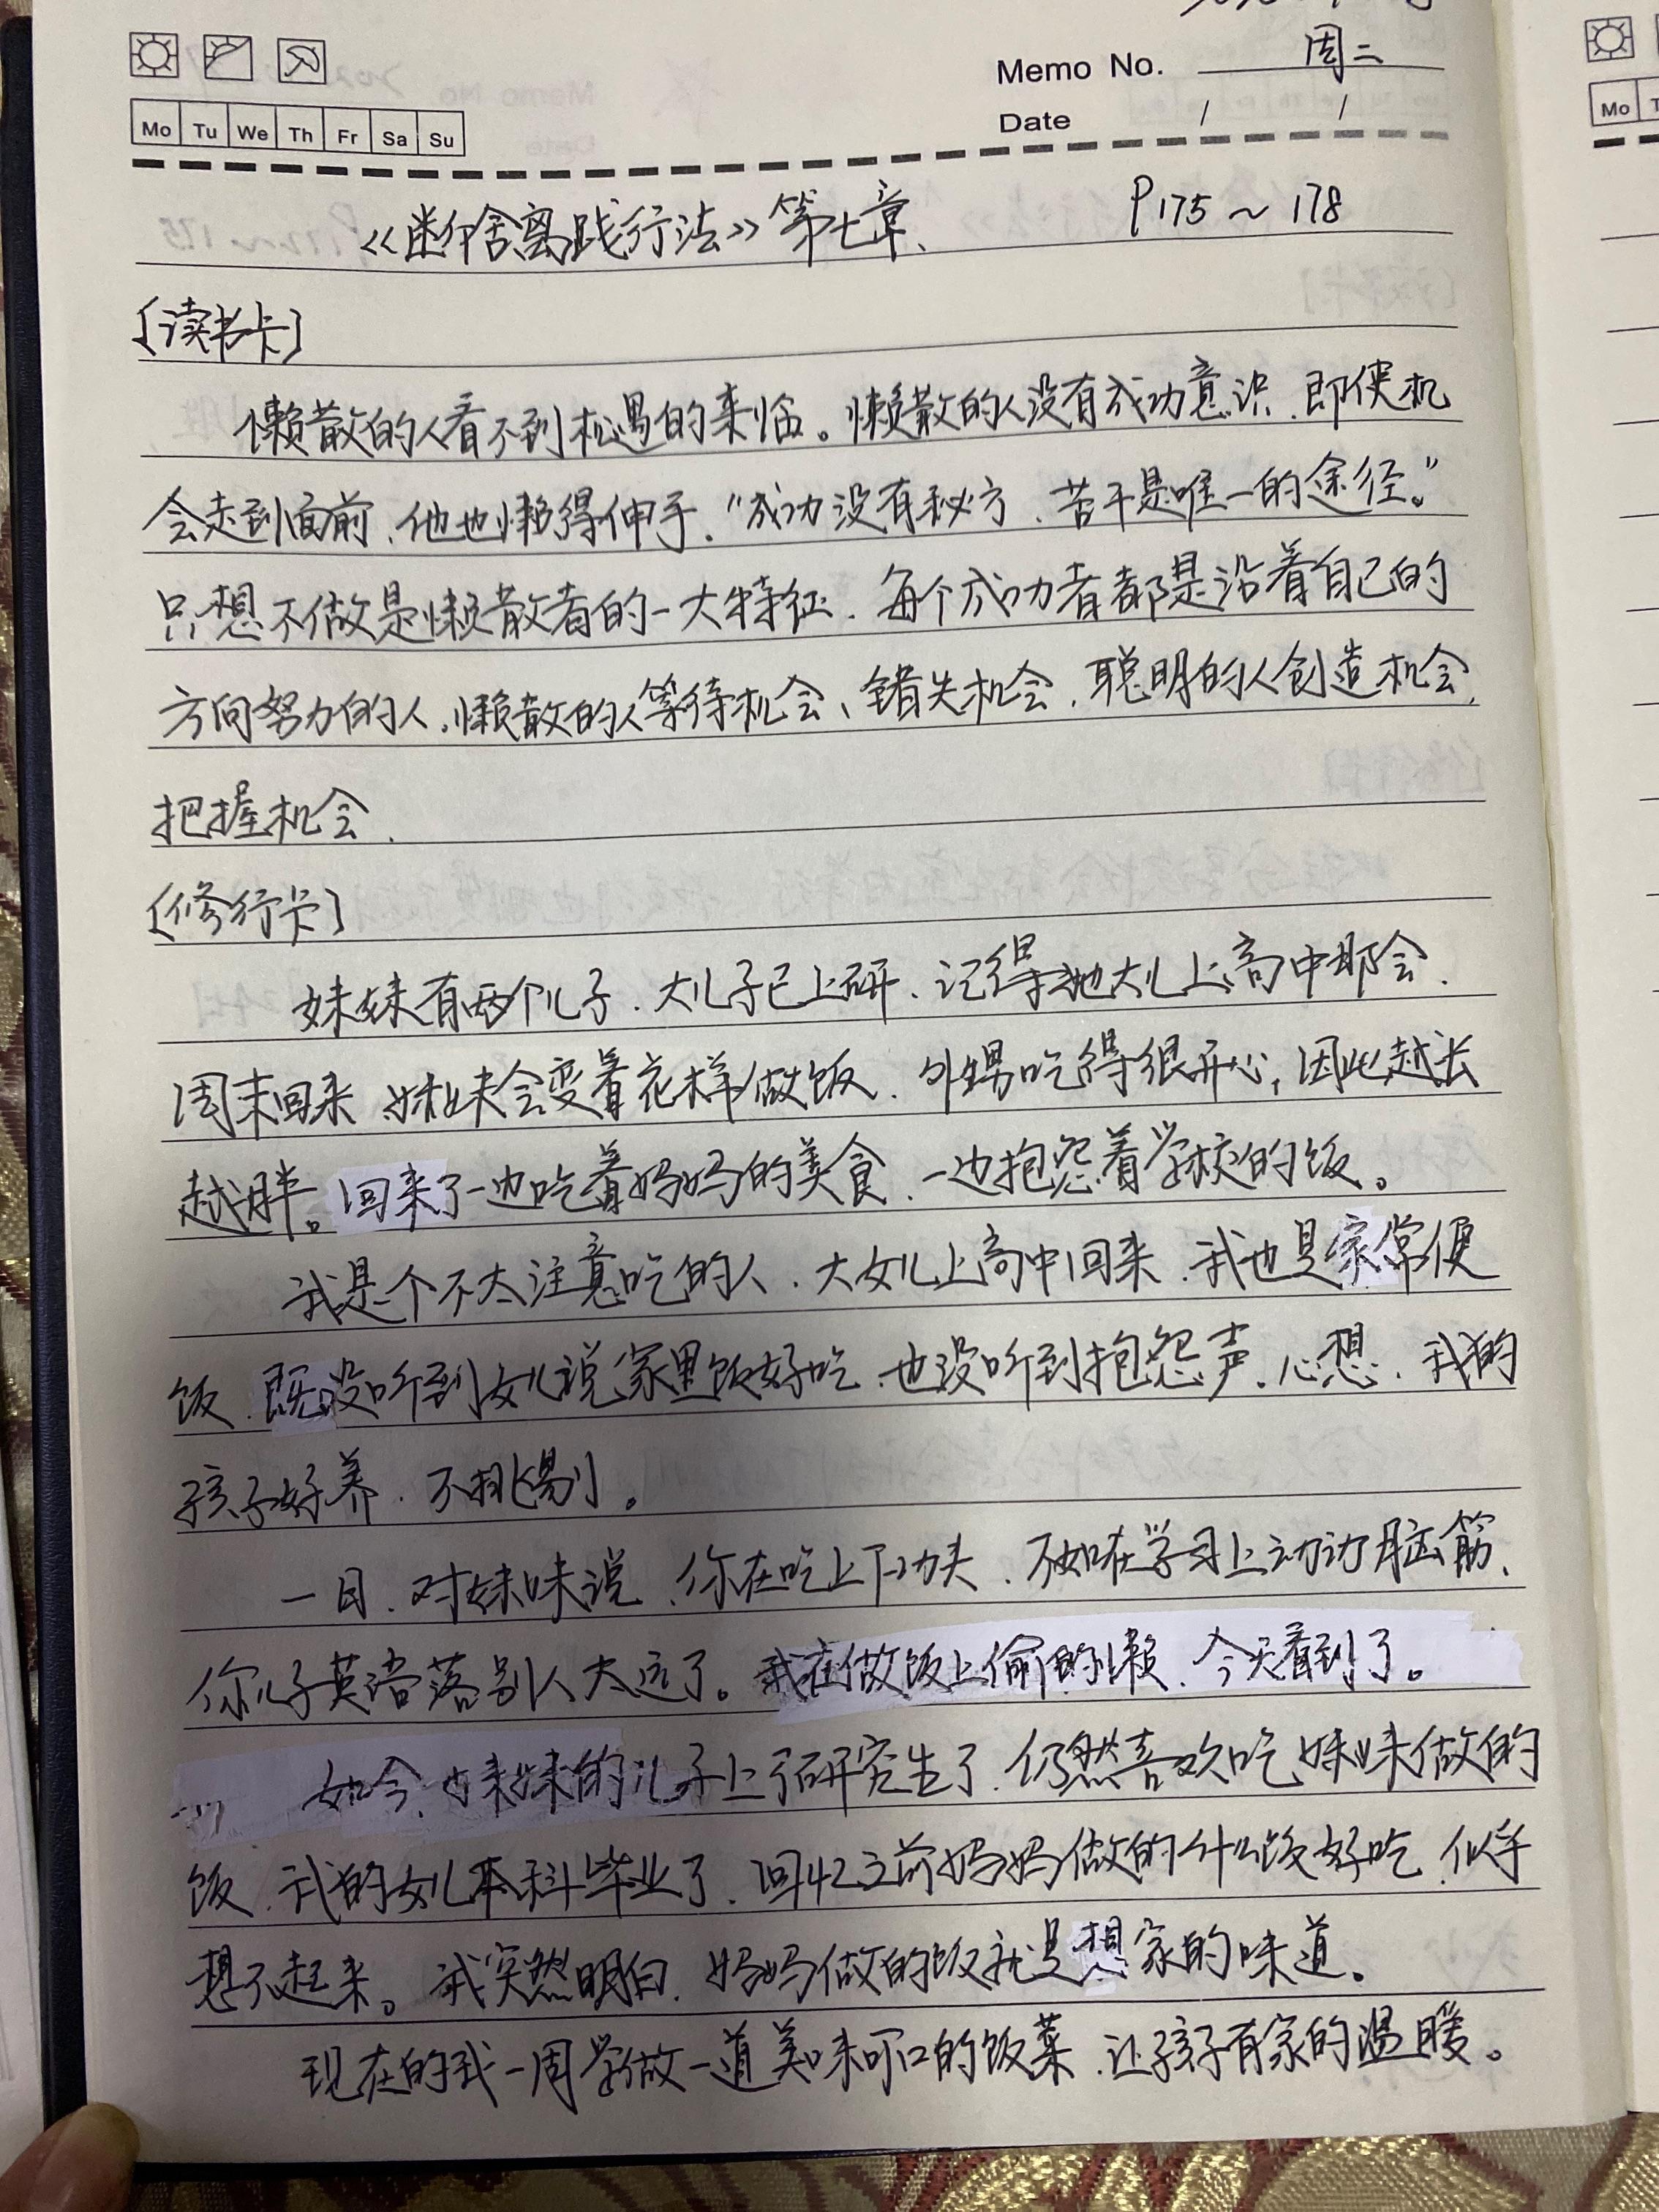 周二
Memo No.
Date / /
Mo Tu We Th Fr Sa Su
《断舍离践行法》第七章、 P175～178
〔读书卡〕
懒散的人看不到机遇的来临。懒散的人没有成功意识、即使机
会走到面前、他也懒得伸手."成功没有秘方、苦干是唯一的途径。"
只想不做是懒散者的一大特征.每个成功者都是沿着自己的
方向努力的人.懒散的人等待机会、错失机会.聪明的人创造机会,
把握机会.
〔修行卡〕
妹妹有两个儿子.大儿子已上研、记得她大儿上高中那会.
周末回来、妹妹会变着花样做饭.外甥吃得很开心,因此越长
越胖。回来了一边吃着妈妈的美食、一边抱怨着学校的饭。
我是个不太注意吃的人.大女儿上高中回来.我也是家常便
饭.既没听到女儿说家里饭好吃.也没听到抱怨声.心想.我的
孩子好养.不挑剔。
一日.对妹妹说.你在吃上下功夫.不如在学习上动动脑筋、
你儿子英语落别人太远了。我在做饭上偷的懒.今天看到了。
如今.妹妹的儿子上了研究生了.仍然喜欢吃妹妹做的
饭.我的女儿本科毕业了.回忆之前妈妈做的什么饭好吃.似乎
想不起来。我突然明白.妈妈做的饭就是想家的味道。
现在的我一周学做一道美味可口的饭菜.让孩子有家的温暖。
Mo